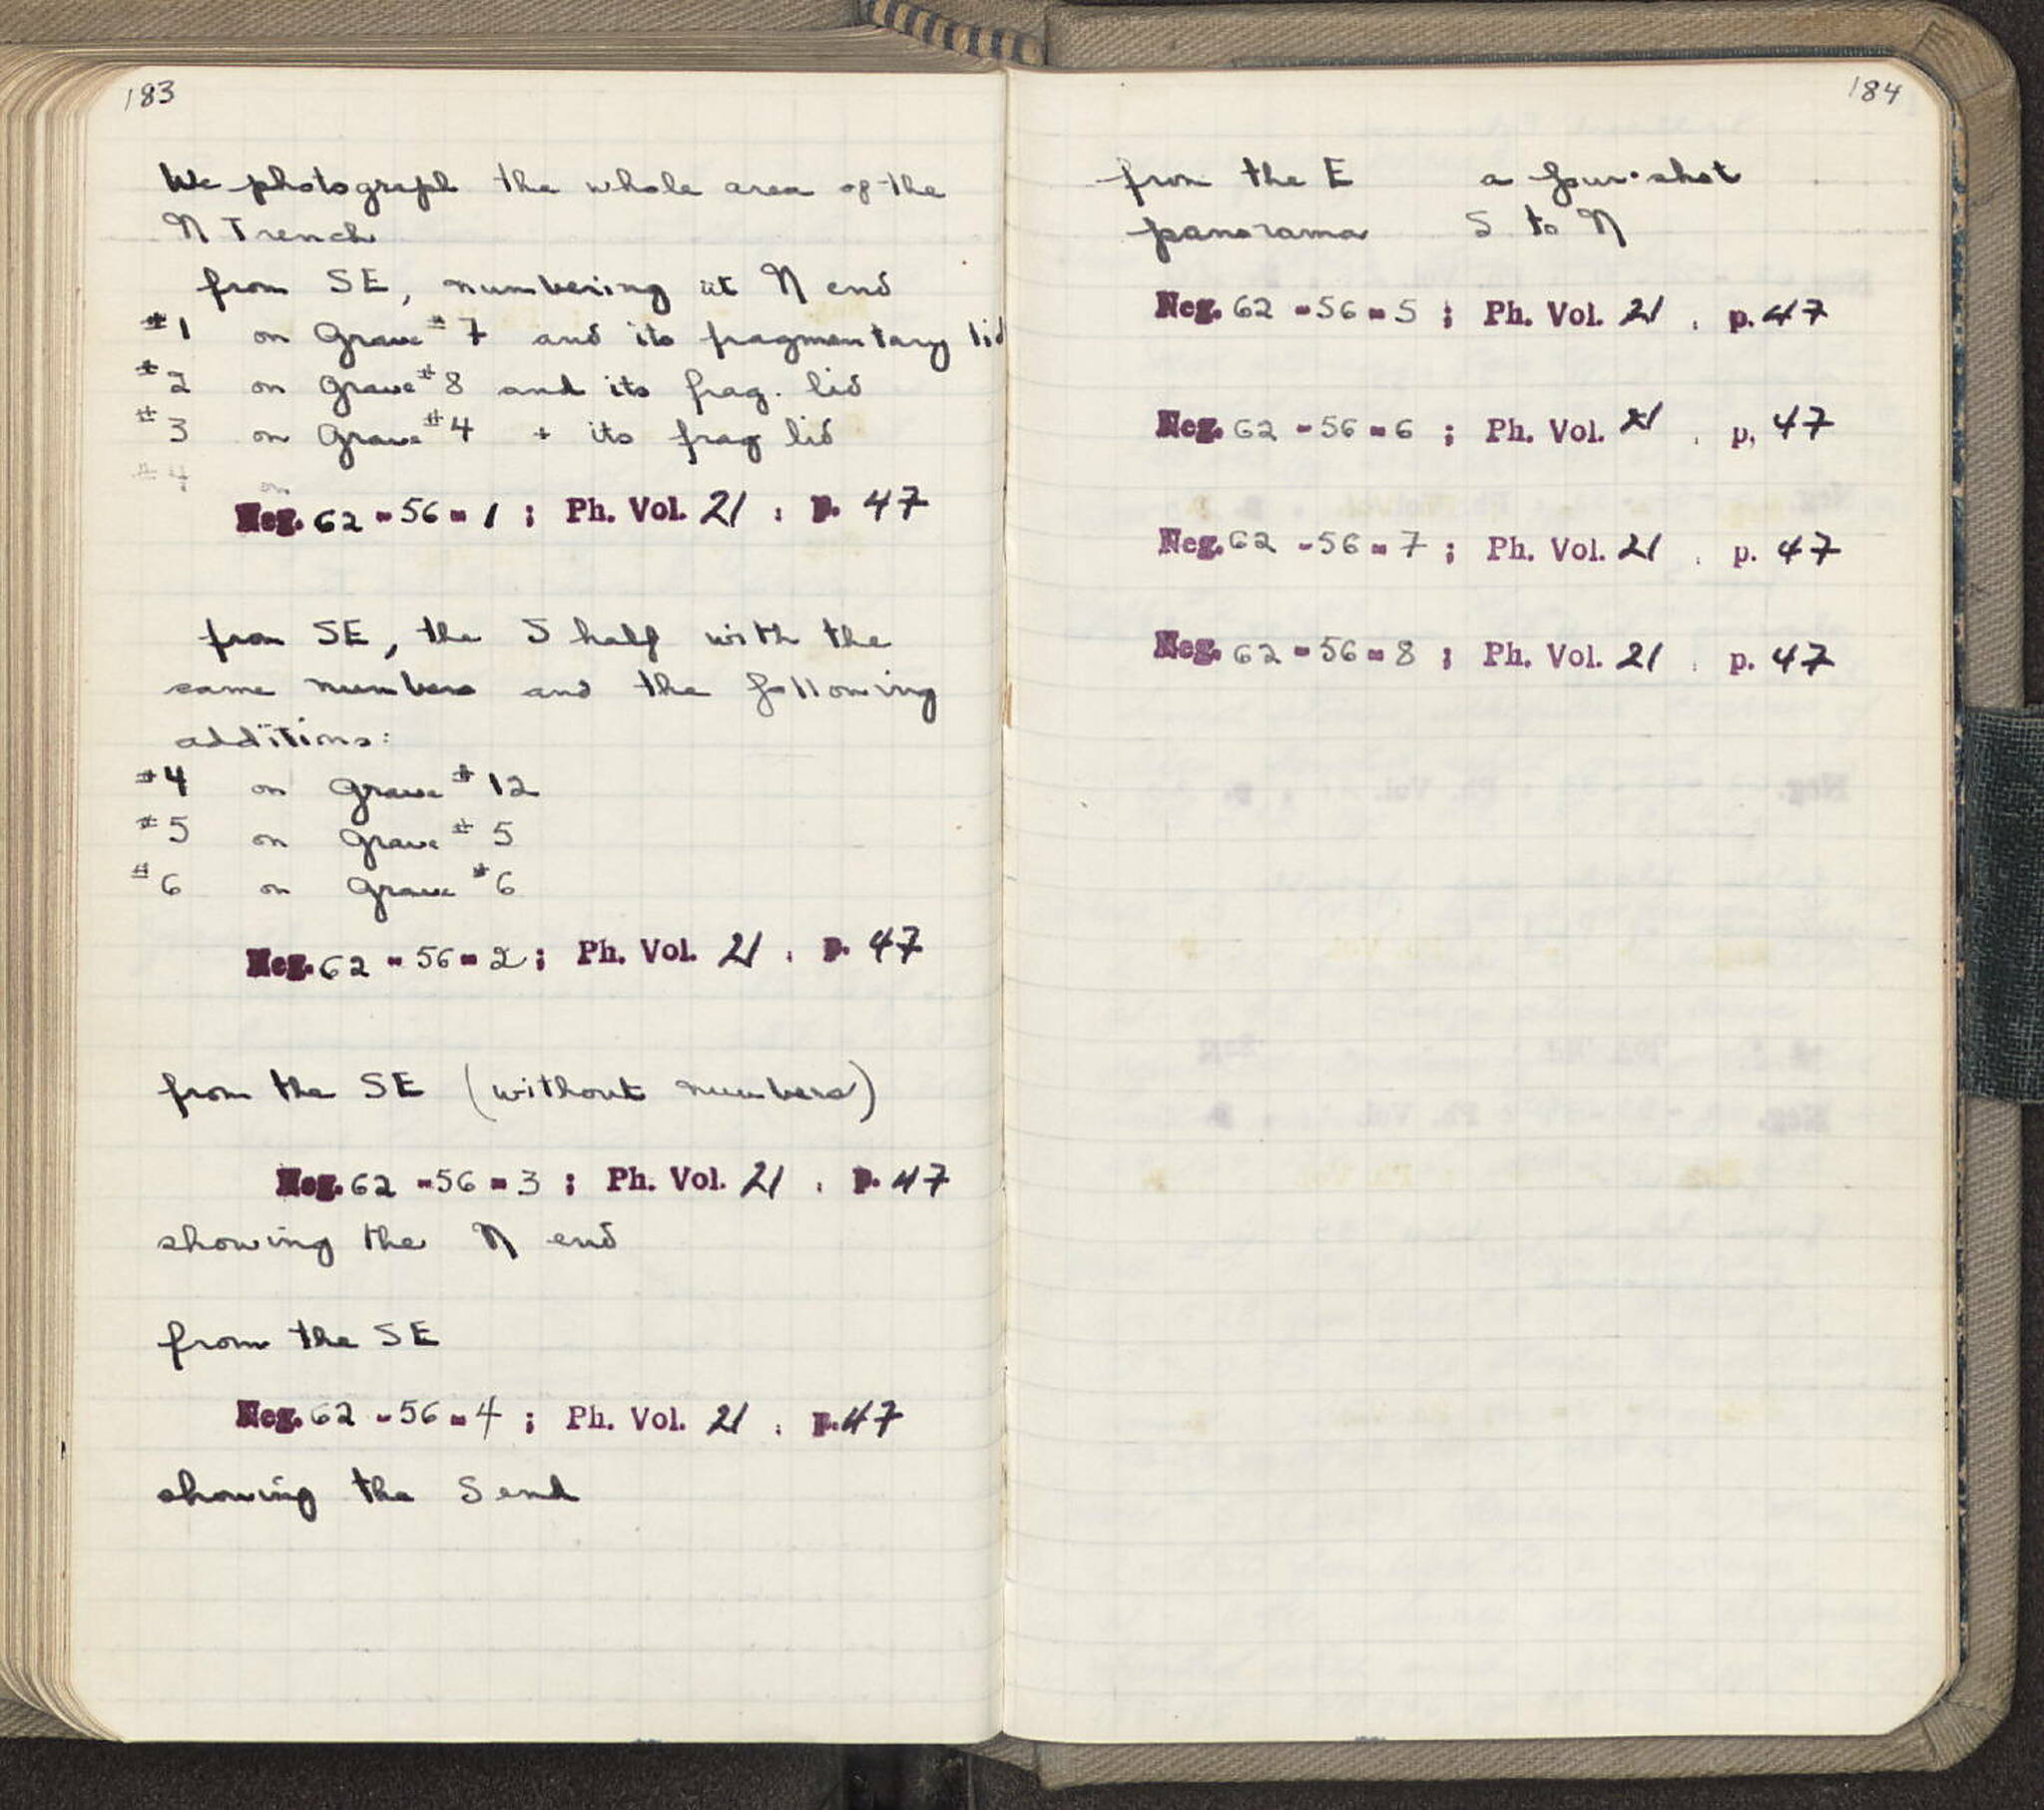 183
We photograph the whole area of the
N Trench
from SE, numbering at N end
#1 on Grave #7 and its fragmentary lid
#2 on Grave #8 and its frag. lid
#3 on Grave #4 + its frag lid
#4 on
Neg. 62-56-1; Ph. Vol. 21, p. 47
from SE, the S half with the
same numbers and the following
additions:
#4 on Grave #12
#5 on Grave #5
#6 on Grave #6
Neg. 62-56-2; Ph. Vol. 21, p. 47
from the SE (without numbers)
Neg. 62-56-3; Ph. Vol. 21, p. 47
showing the N end
from the SE
Neg. 62-56-4; Ph. Vol. 21, p. 47
showing the S end
184
from the E a four-shot
panorama S to N
Neg. 62-56-5; Ph. Vol. 21, p. 47
Neg. 62-56-6; Ph. Vol. 21, p. 47
Neg. 62-56-7; Ph. Vol. 21, p. 47
Neg. 62-56-8; Ph. Vol. 21, p. 47